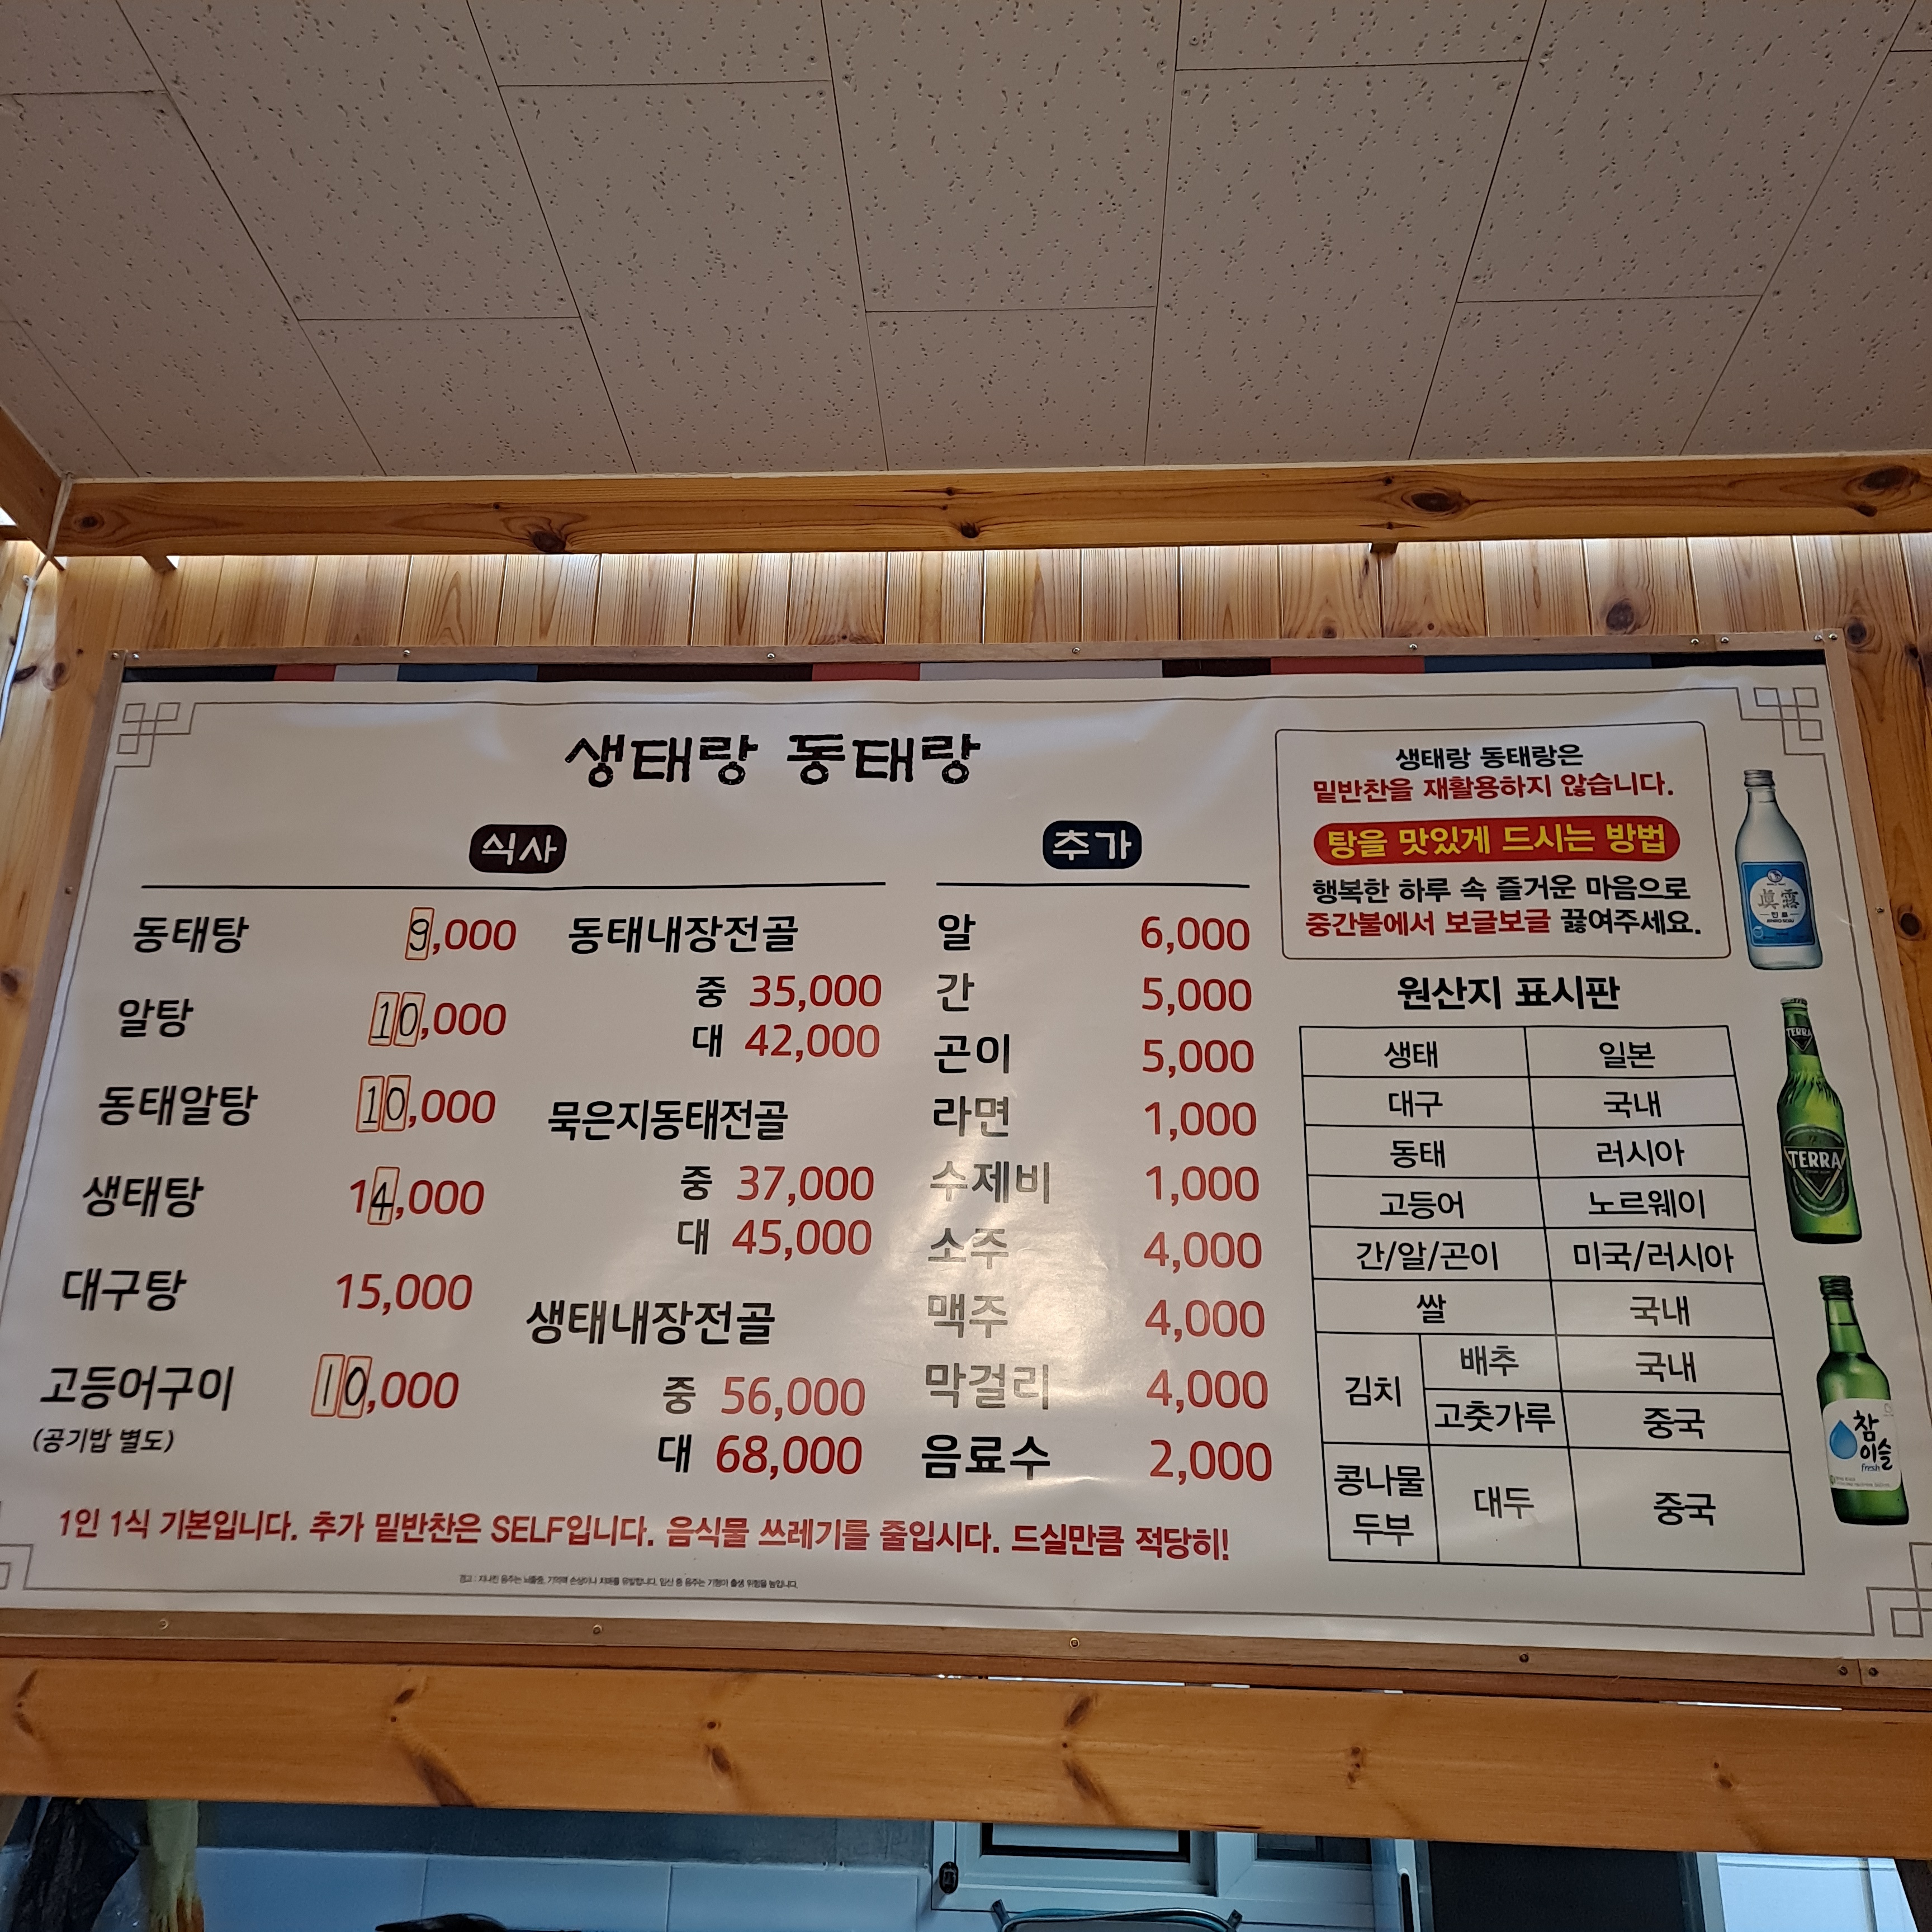 생태랑 동태랑
식사
동태탕 9,000
알탕 10,000
동태알탕 10,000
생태탕 14,000
대구탕 15,000
고등어구이 10,000
(공기밥 별도)
동태내장전골
중 35,000
대 42,000
묵은지동태전골
중 37,000
대 45,000
생태내장전골
중 56,000
대 68,000
추가
알 6,000
간 5,000
곤이 5,000
라면 1,000
수제비 1,000
소주 4,000
맥주 4,000
막걸리 4,000
음료수 2,000
1인 1식 기본입니다. 추가 밑반찬은 SELF입니다. 음식물 쓰레기를 줄입시다. 드실만큼 적당히!
경고 : 지나친 음주는 뇌졸중, 기억력 손상이나 치매를 유발합니다. 임신 중 음주는 기형아 출생 위험을 높입니다.
생태랑 동태랑은
밑반찬을 재활용하지 않습니다.
탕을 맛있게 드시는 방법
행복한 하루 속 즐거운 마음으로
중간불에서 보글보글 끓여주세요.
원산지 표시판
생태 일본
대구 국내
동태 러시아
고등어 노르웨이
간/알/곤이 미국/러시아
쌀 국내
김치 배추 국내
고춧가루 중국
콩나물 두부 대두 중국
眞露
진로
TERRA
TERRA
참
이슬
fresh